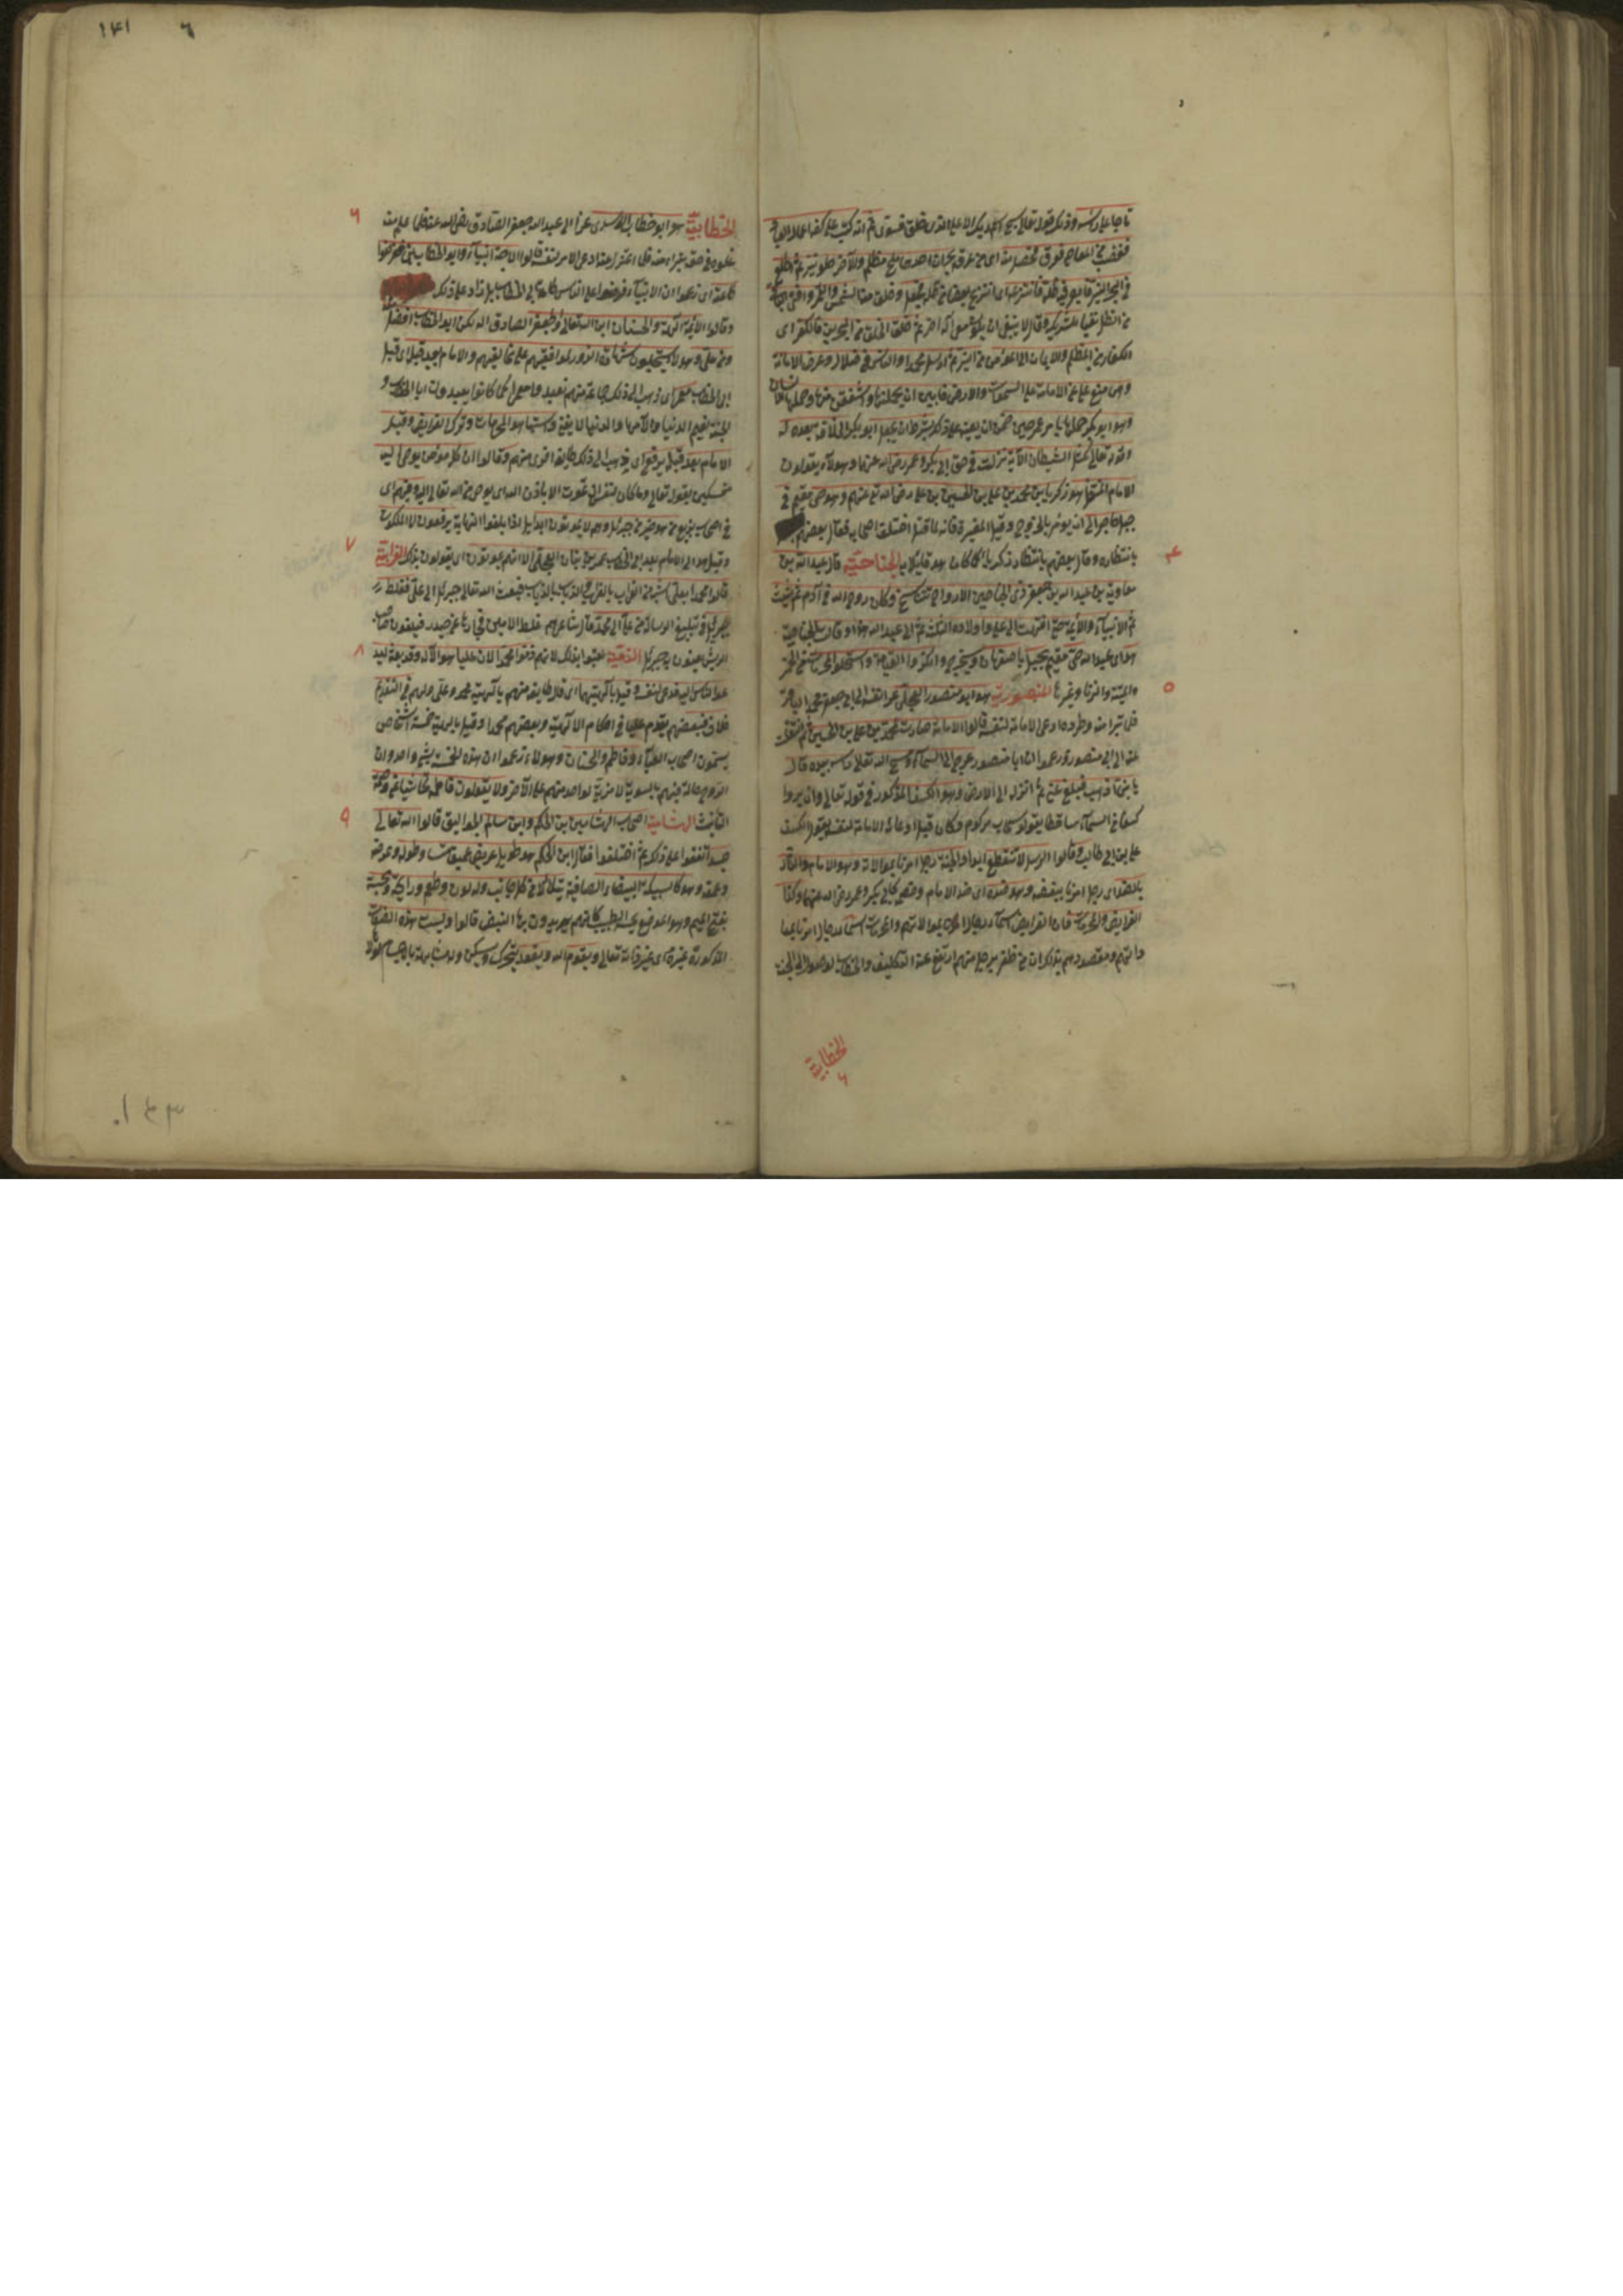 تاجا على رأسه وذلك قوله تعالى سبح اسم ربك الاعلى الذى خلق فسوى ثم انه كتب على كفه اعمال العباد
فغضب من المعاصى فعرق فحصل منه اى من عرقه بحران احدهما ملح مظلم والآخر حلو نير ثم اطلع
فى البحر النير فابصر فيه ظله فانتزعه اى انتزع بعضا من ظله فجعل وخلق منه الشمس والقمر وافنى الباقى
من الظل نفيا للشريك وقال لا ينبغى ان يكون معى آله آخر ثم خلق الخلق من البحرين فالكفر اى
الكفار من المظلم والايمان اى المؤمن من النير ثم ارسل محمدا والناس فى ضلال وعرض الامانة
وهى منع على عن الامامة على السموات والارض فابين ان يحملنها واشفقن منها وحملها الانسان
وهو ابو بكر حملها بامر عمر حين ضمن ان يعينه على ذلك بشرط ان يجعل ابو بكر الخلافة بعده له
وقوله تعالى كمثل الشيطان الآية نزلت فى حق ابى بكر وعمر رضى الله عنهما وهؤلاء يقولون
الامام المنتظر هو زكريا بن محمد بن على بن الحسين بن على رضى الله تع عنهم وهو حى مقيم فى
جبل حاجر الى ان يؤمر بالخروج وقيل المغيرة فانه لما قتل اختلف اصحابه فقال بعضهم
بانتظاره وقال بعضهم بانتظار زكريا كما كان هو قايلا به الجناحية قال عبد الله بن
معاوية بن عبد الله بن جعفر ذى الجناحين الارواح تتناسخ وكان روح الله فى آدم ثم شيث
ثم الانبياء والائمة حتى انتهت الى على واولاده الثلثة ثم الى عبد الله هذا وقالت الجناحية
هو اى عبد الله حى مقيم بجبل باصفهان وسيخرج وانكروا القيامة واستحلوا المحرمات من الخمر
والميتة والزنا وغيرها المنصورية هو ابو منصور العجلى عزا نفسه الى ابى جعفر محمد الباقر
فلما تبرا منه وطرده ادعى الامامة لنفسه قالوا الامامة صارت لمحمد بن على بن الحسين ثم انتقلت
عنه الى ابى منصور وزعموا ان ابا منصور عرج الى السماء ومسح الله تعالى رأسه بيده قال
يا بنى اذهب فبلغ عنى ثم انزله الى الارض وهو الكسف المذكور فى قوله تعالى وان يروا
كسفا من السماء ساقطا يقولوا سحاب مركوم وكان قبل ادعائه الامامة لنفسه يقول الكسف
على بن ابى طالب وقالوا الرسل لا تنقطع ابدا والجنة رجل امرنا بموالاته وهو الامام والنار
بالضد اى رجل امرنا ببغضه وهو ضده اى ضد الامام وخصمه كابى بكر وعمر رضى الله عنهما وكذا
الفرايض والمحرمات فان الفرايض اسماء رجال امرنا بموالاتهم والمحرمات اسماء رجال امرنا بمعا
داتهم ومقصودهم بذلك ان من ظفر برجل منهم ارتفع عنه التكليف والخطاب لوصوله الى الجنة
الخطابية
٦
٤
٥
٦ ١٤١
الخطابية هو ابو خطاب الاسدى عزا الى عبد الله جعفر الصادق رضى الله عنه فلما علم منه
غلوه فى حقه تبرا منه فلما اعتزل عنه ادعى الامر لنفسه قالوا الائمة انبياء وابو الخطاب نبى ففرضوا
طاعته اى زعموا ان الانبياء فرضوا على الناس طاعة ابى الخطاب بل زاد على ذلك
وقالوا الائمة آلهة والحسنان ابناء الله تعالى وجعفر الصادق اله لكن ابو الخطاب افضل منه
ومن على وهؤلاء يستحلون شهادة الزور لموافقيهم على مخالفيهم والامام بعد قتله اى قتل
ابى الخطاب معمر اى ذهب الى ذلك جماعة منهم فعبدوا معمرا كما كانوا يعبدون ابا الخطاب و
الجنة نعيم الدنيا والنار آلامها والدنيا لا يفنى واستباحوا المحرمات وترك الفرايض وقيل
الامام بعد قتله بزيغ اى ذهب الى ذلك طايفة اخرى منهم وقالوا ان كل مؤمن يوحى اليه
متمسكين بقوله تعالى وما كان لنفس ان تموت الا باذن الله اى بوحى من الله تعالى اليه وفيهم اى
فى اصحاب بزيغ من هو خير من جبرئيل وهم لا يموتون ابدا بل اذا بلغوا النهاية يرفعون الى الملكوت
وقيل هو اى الامام بعد ابى الخطاب عمر بن بنان العجلى الا انهم يموتون اى يقولون بذلك الغرابية
قالوا محمد بعلى اشبه من الغراب بالغراب والذباب بالذباب فبعث الله تعالى جبرئيل الى على فغلط
جبرئيل فى تبليغ الرسالة من على الى محمد قال شاعرهم غلط الامين فجازها عن حيدر فيلعنون صاحب
الريش يعنون به جبرئيل الذمية لقبوا بذلك لانهم ذموا محمدا لان عليا هو الاله وقد بعثه ليد
عو الناس اليه فدعى لنفسه وقيل بآلهيتهما اى قال طايفة منهم بآلهية محمد وعلى ولهم فى التقديم
خلاف فبعضهم يقدم عليا فى احكام الآلهية وبعضهم محمدا وقيل بالهية خمسة اشخاص
يسمون اصحاب العباء وفاطم والحسنان وهؤلاء زعموا ان هذه الخمسة شىء واحد وان
الروح حالة فيهم بالسوية لا مزية لواحد منهم على الآخر ولا يقولون فاطمة تحاشيا عن وصمة
التانيث الهشامية اصحاب الهشامين بن الحكم وابن سالم الجواليقى قالوا الله تعالى
جسد اتفقوا على ذلك ثم اختلفوا فقال ابن الحكم هو طويل عريض عميق متساو طوله وعرضه
وعمقه وهو كالسبيكة البيضاء الصافية يتلألأ من كل جانب وله لون وطعم ورايحة ومجسة
بفتح الميم وهو الموضع الذى يجسه الطبيب كانهم يريدون بها النبض قالوا وليست هذه الصفات
المذكورة غيره اى غير ذاته تعالى ويقوم الله ويقعد ويتحرك ويسكن وله مشابهة بالاجسام لولا
٦
٧
٨
٩